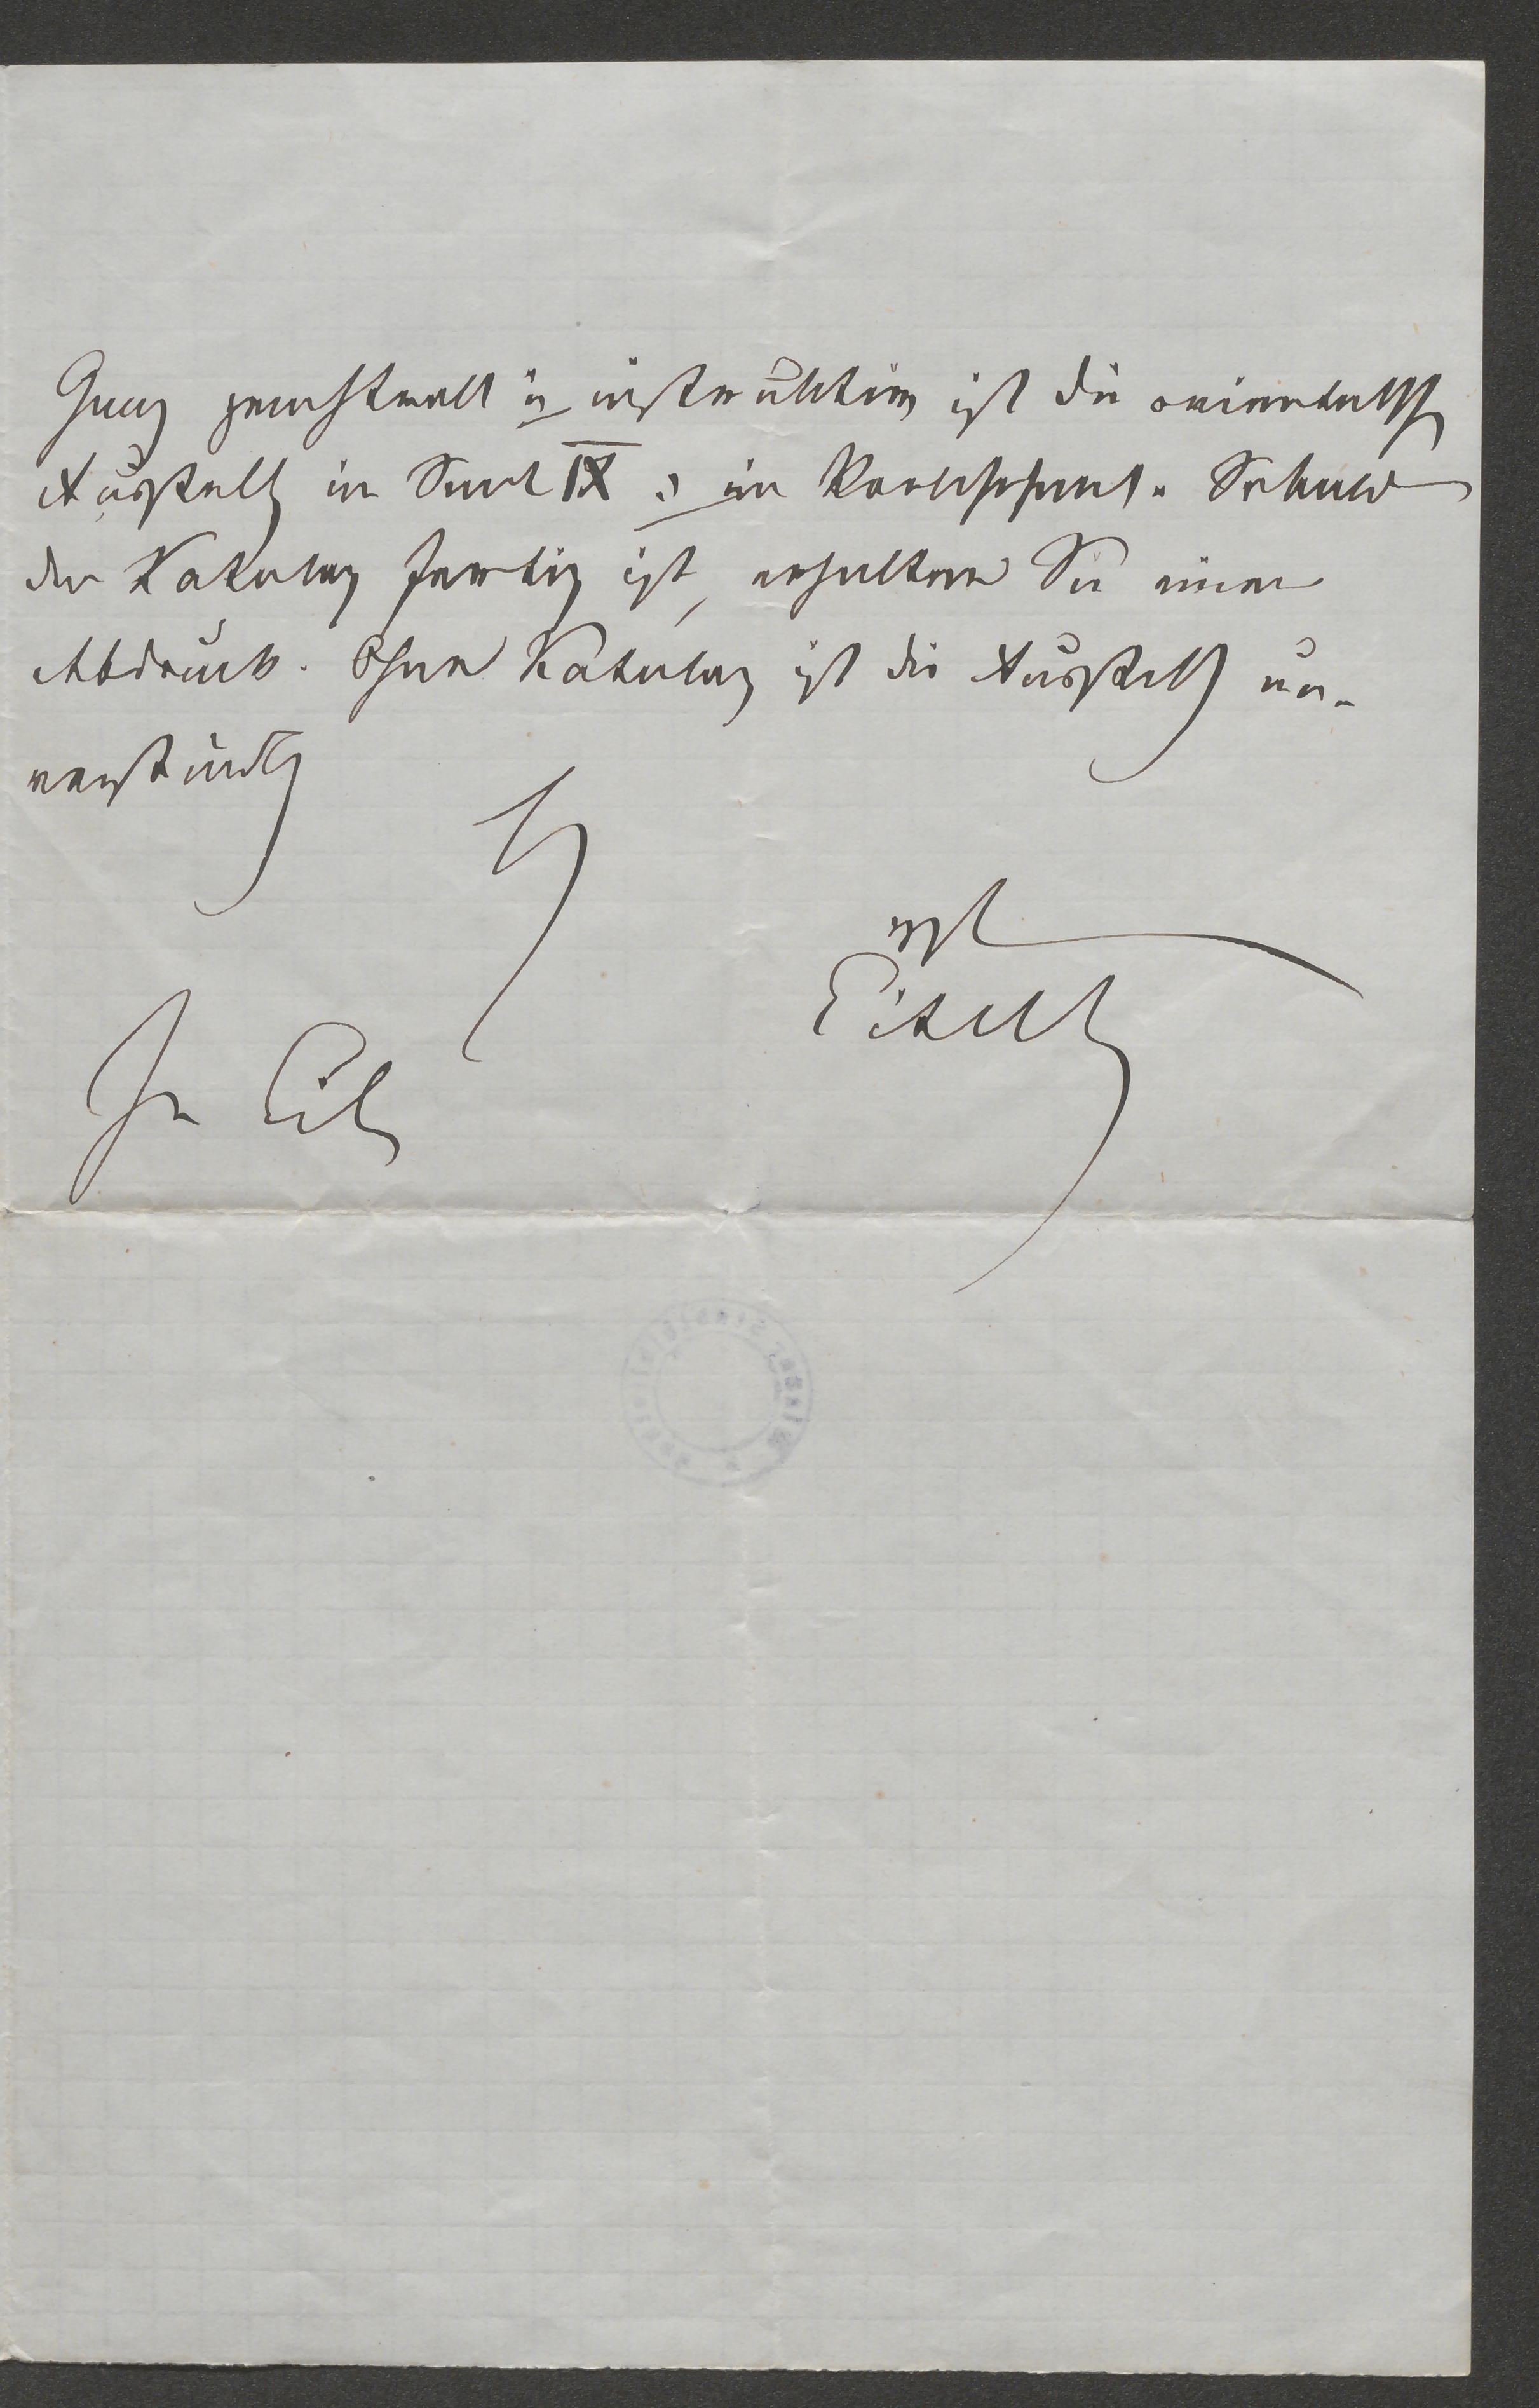 Ganz prachtvoll u instruktiv ist die orientalisch
Ausstellg in Saal IX u im Vorlesesaal. Sobald
der Katalog fertig ist, erhalten Sie einen
Abdruck. Ohne Katalog ist die Ausstellg un-
verständlich
Eitelb
In Eile